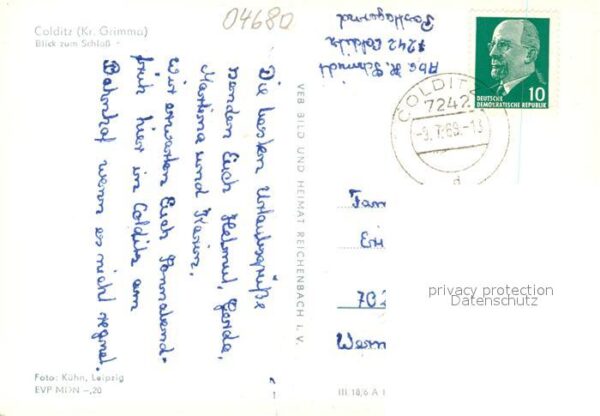 Colditz (Kr. Grimma)
Blick zum Schloß
04680
Die besten Urlaubsgrüße
senden Euch Helmut, Gerda,
Martina und Karin.
Wir erwarten Euch Sonnabend-
früh hier in Colditz am
Bahnhof wenn es nicht regnet.
Foto: Kühn, Leipzig
EVP MDN -,20
VEB BILD UND HEIMAT REICHENBACH I. V.
Abs. H. Schmidt
7242 Colditz
Postlagernd
COLDITZ
7242
-9.7.69.-13
d
10
DEUTSCHE
DEMOKRATISCHE REPUBLIK
Fam
Eri
702
Werm
privacy protection
Datenschutz
III/18/6 A 1